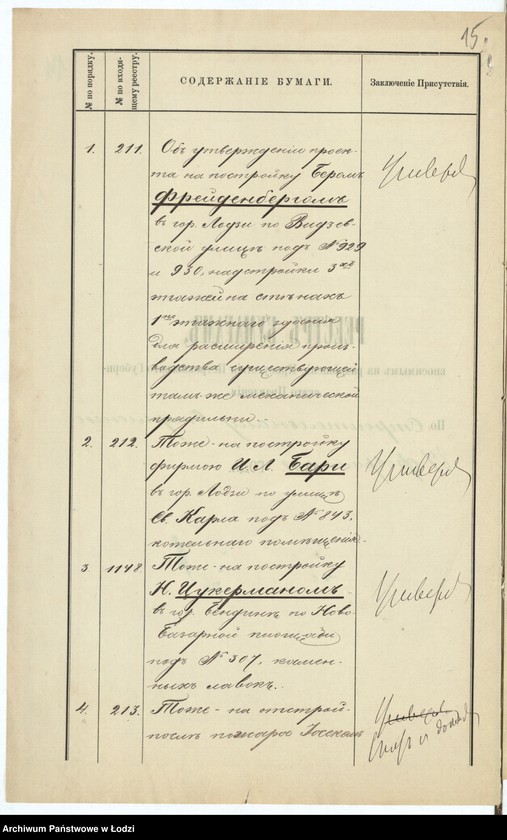 15.
№ по порядку.
№ по входя-
щему реестру.
СОДЕРЖАНІЕ БУМАГИ.
Заключеніе Присутствія.
1. 211. Объ утвержденіи проек-
та на постройку Беромъ
Фрейденбергомъ
въ гор. Лодзи по Видзев-
ской улицѣ подъ №929
и 930, надстройки 3хъ
этажей на стѣнахъ
1но этажнаго зданія
для расширенія произ-
водства существующей
тамъ же механической
прядильни.-
2. 212. Тоже - на постройку
фирмою И. Л. Бари
въ гор. Лодзи по улицѣ
Св. Карла подъ №843,
котельнаго помѣщенія.-
3 1148. Тоже - на постройку
Н. Цукерманомъ -
въ гор. Бендинѣ по Ново-
Базарной площади
подъ № 307, камен-
ныхъ лавокъ.-
4. 213. Тоже - на отстрой-
послѣ пожара Іоскомъ
Archiwum Państwowe w Łodzi